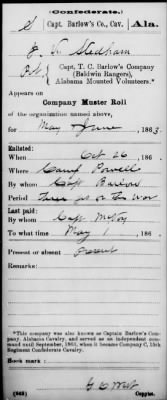 (Confederate.)
S Capt. Barlow's Co., Cav. Ala.
Stedham
Pvt, Capt. T. C. Barlow's Company
(Baldwin Rangers),
Alabama Mounted Volunteers.*
Appears on
Company Muster Roll
of the organization named above,
for May & June, 1863.
Enlisted:
When Oct 26, 186
Where Camp Powell
By whom Capt Barlow
Period three yrs or the war
Last paid:
By whom Capt McVoy
To what time May 1, 186
Present or absent Present
Remarks:
*This company was also known as Captain Barlow's Company, Alabama Cavalry, and served as an independent command until September, 1863, when it became Company C, 15th Regiment Confederate Cavalry.
Book mark:
(642)
Copyist.